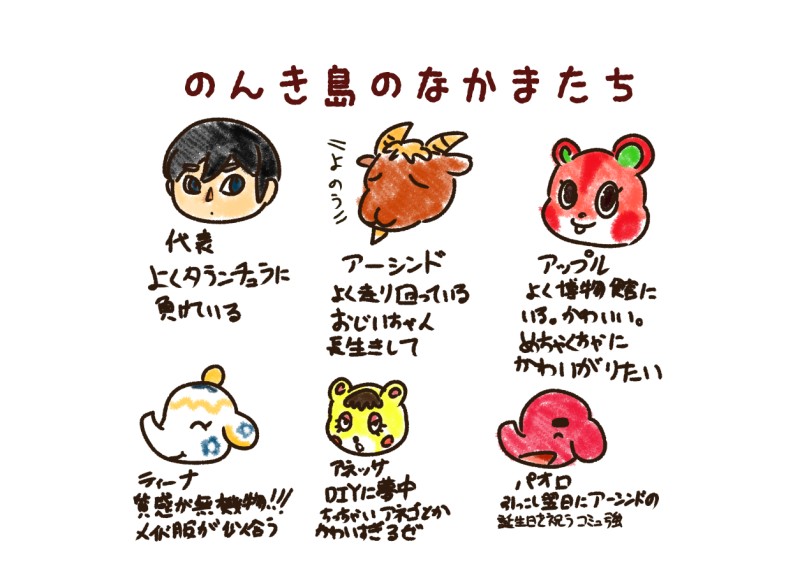 のんき島のなかまたち
代表
よくタランチュラに
負けている
よのう
アーシンド
よく走り回っている
おじいちゃん
長生きして
アップル
よく博物館に
いる。かわいい。
めちゃくちゃに
かわいがりたい
ティーナ
質感が無機物!!!
メイド服が似合う
アネッサ
DIYに夢中
ちっちゃいアネゴとか
かわいすぎるぜ
パオロ
引っこし翌日にアーシンドの
誕生日を祝うコミュ強